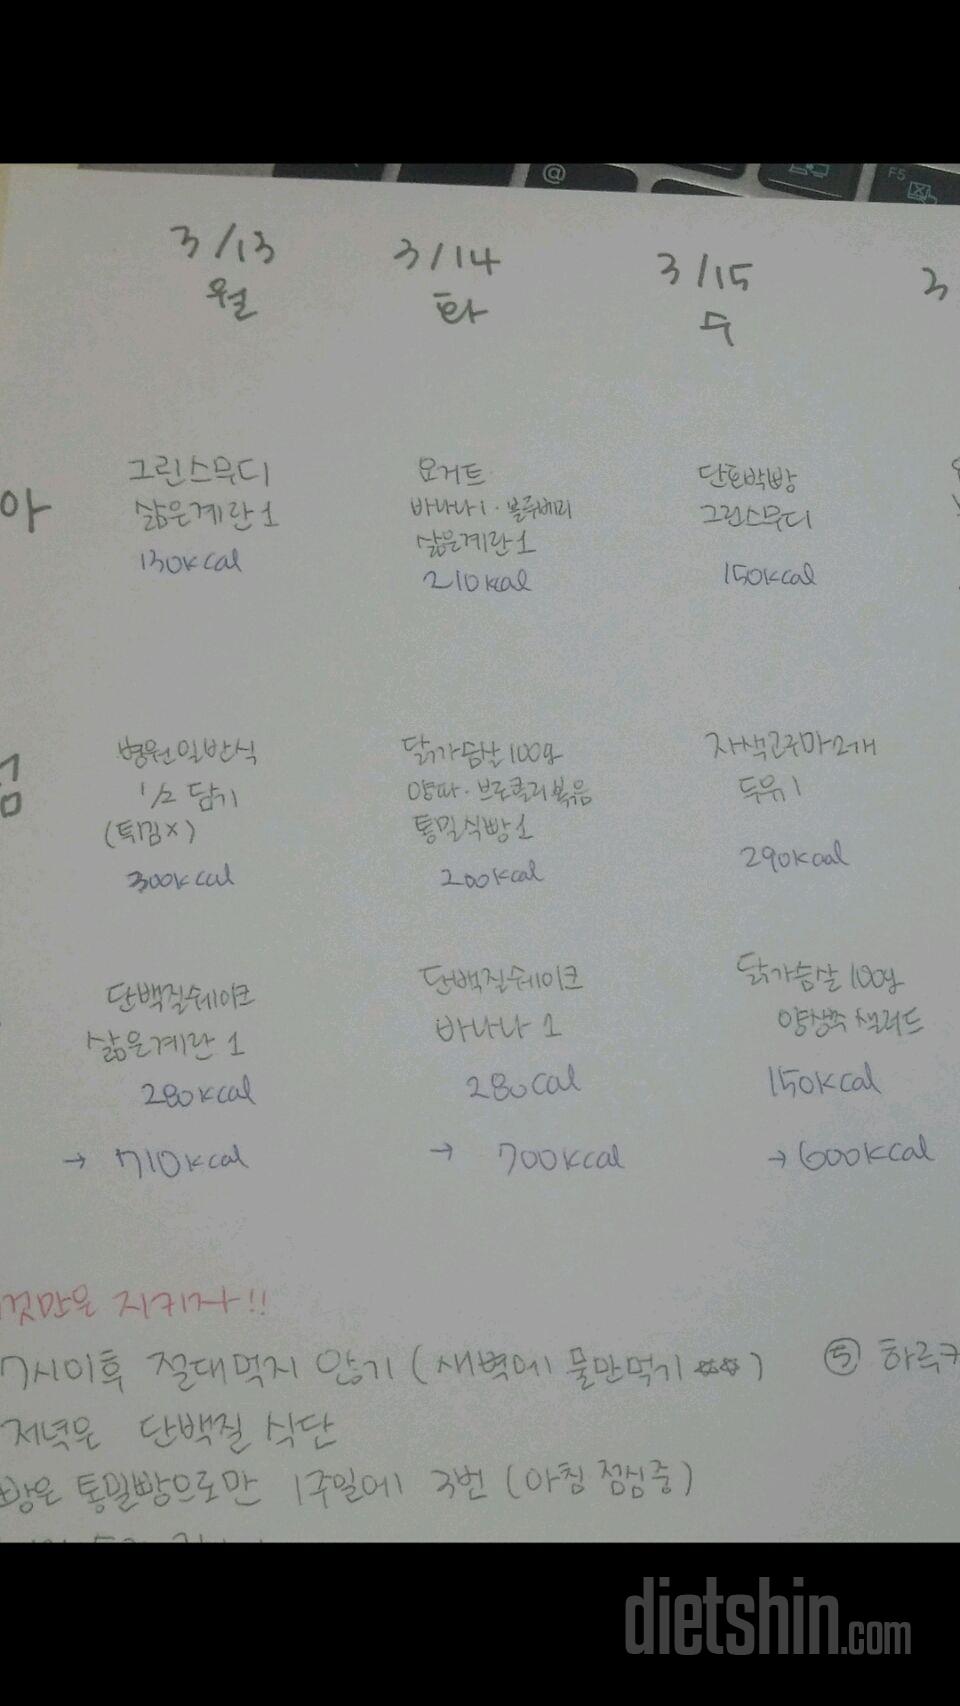 @
F5
3/13
월
3/14
화
3/15
수
3
아
그린스무디
삶은계란 1
130kcal
요거트
바나나1·블루베리
삶은계란 1
210kcal
단호박빵
그린스무디
150kcal
병원일반식
1/2 담기
(튀김X)
300kcal
닭가슴살 100g
양파·브로콜리볶음
통밀식빵 1
200kcal
자색고구마2개
두유 1
290kcal
단백질쉐이크
삶은계란 1
280kcal
→ 710kcal
단백질쉐이크
바나나 1
280cal
→ 700kcal
닭가슴살 100g
양상추 샐러드
150kcal
→ 600kcal
것만은 지키자!!
7시이후 절대먹지 않기 (새벽에 물만먹기 ☆☆)
⑤ 하루
저녁은 단백질 식단
빵은 통밀빵으로만 1주일에 3번 (아침 점심중)
dietshin.com